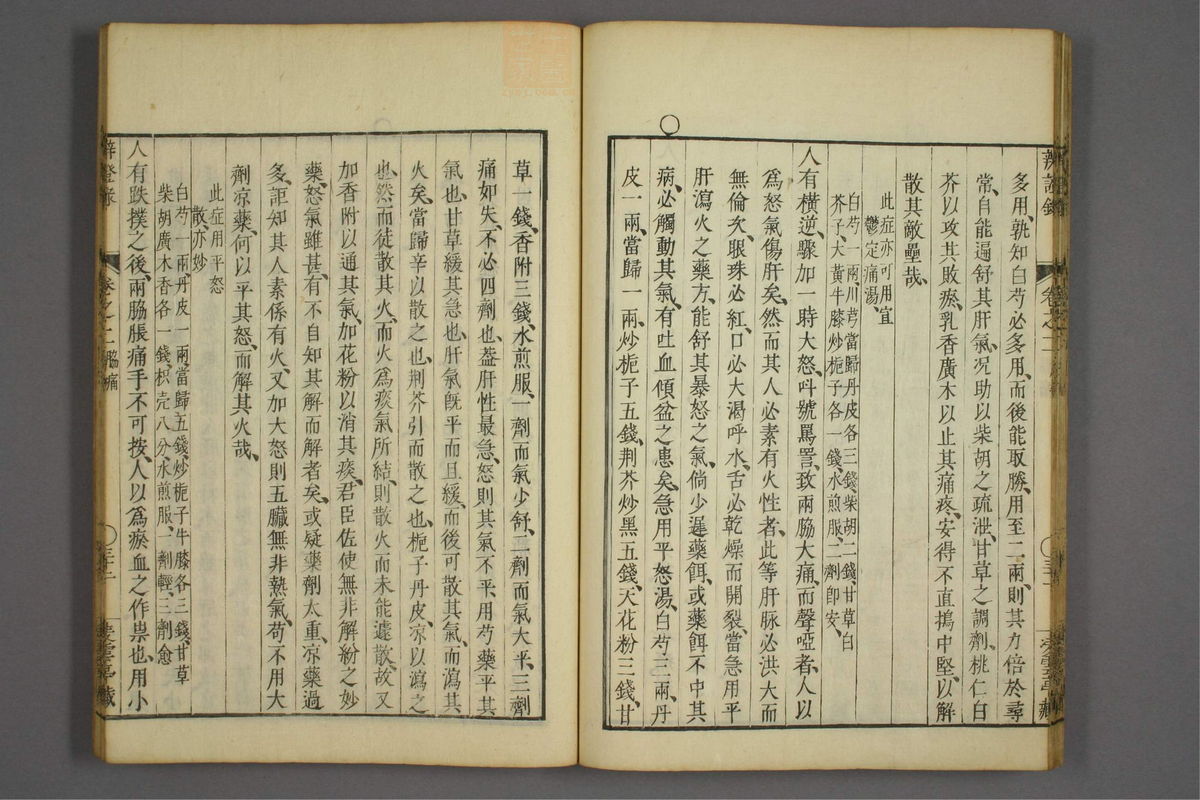 多用孰知白芍必多用而後能取勝用至二兩則其力倍於尋
常自能遍舒其肝氣况助以柴胡之疏泄甘草之調劑桃仁白
芥以攻其敗瘀乳香廣木以止其痛疼安得不直搗中堅以解
散其敵壘哉
此症亦可用宣
鬱定痛湯
白芍一兩川芎當歸丹皮各三錢柴胡二錢甘草白
芥子大黃牛膝炒梔子各一錢水煎服二劑即安
人有橫逆驟加一時大怒呌號罵詈致兩脇大痛而聲啞者人以
爲怒氣傷肝矣然而其人必素有火性者此等肝脉必洪大而
無倫次眼珠必紅口必大渴呼水舌必乾燥而開裂當急用平
肝瀉火之藥方能舒其暴怒之氣倘少遲藥餌或藥餌不中其
病必觸動其氣有吐血傾盆之患矣急用平怒湯白芍三兩丹
皮一兩當歸一兩炒梔子五錢荆芥炒黑五錢天花粉三錢甘
草一錢香附三錢水煎服一劑而氣少舒二劑而氣大平三劑
痛如失不必四劑也葢肝性最急怒則其氣不平用芍藥平其
氣也甘草緩其急也肝氣旣平而且緩而後可散其氣而瀉其
火矣當歸辛以散之也荆芥引而散之也梔子丹皮凉以瀉之
也然而徒散其火而火爲痰氣所結則散火而未能遽散故又
加香附以通其氣加花粉以消其痰君臣佐使無非解紛之妙
藥怒氣雖甚有不自知其解而解者矣或疑藥劑太重凉藥過
多詎知其人素係有火又加大怒則五臟無非熱氣苟不用大
劑凉藥何以平其怒而解其火哉
此症用平怒
散亦妙
白芍一兩丹皮一兩當歸五錢炒梔子牛膝各三錢甘草
柴胡廣木香各一錢枳壳八分水煎服一劑輕三劑愈
人有跌撲之後兩脇脹痛手不可按人以爲瘀血之作祟也用小